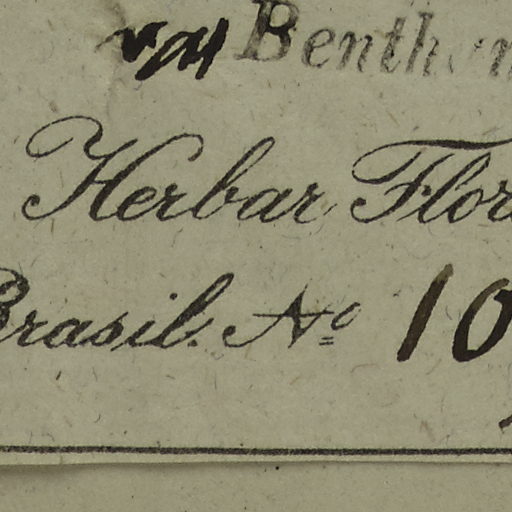 Benth
Herbar Flor
Brasil. No 10